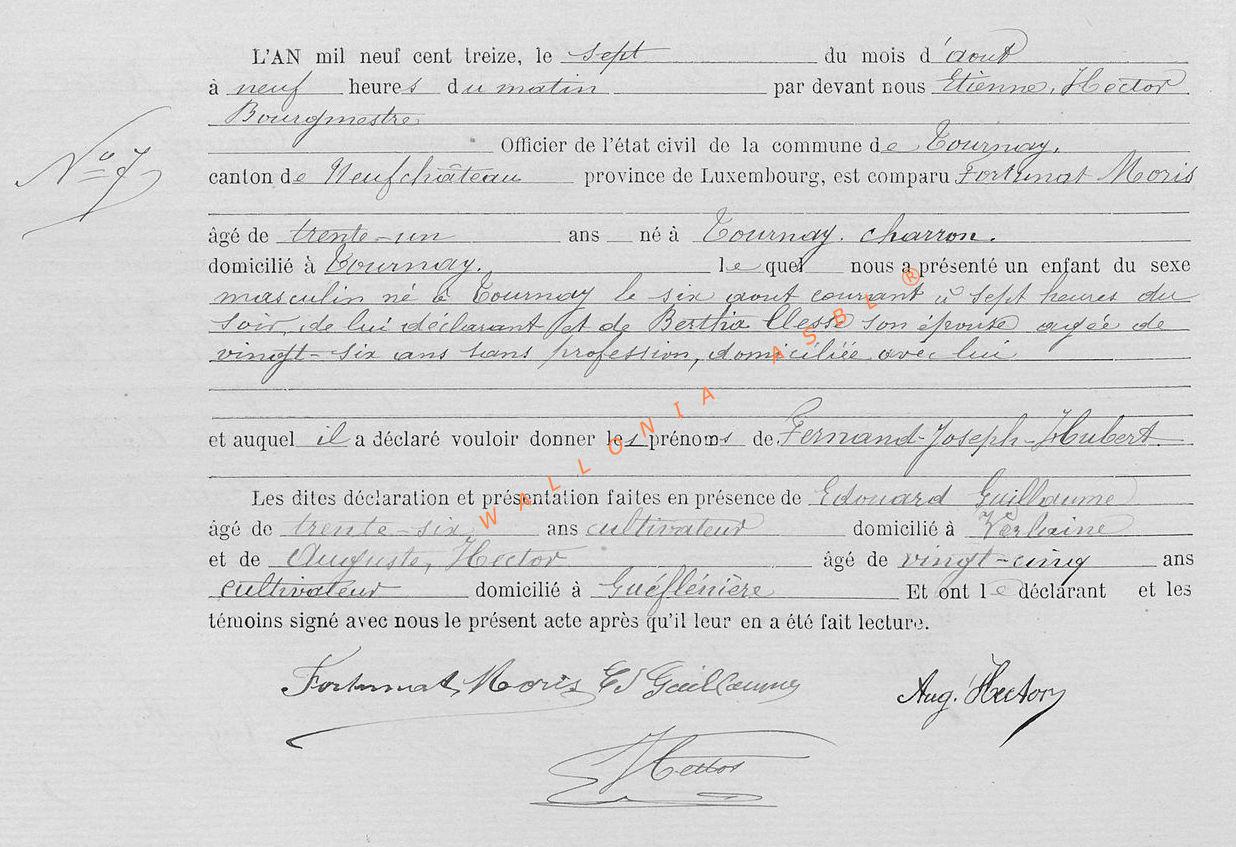 L'AN mil neuf cent treize, le sept du mois d'aout
à neuf heures du matin par devant nous Etienne, Hector
Bourgmestre
Officier de l'état civil de la commune de Tournay,
N° 7
canton de Neufchâteau province de Luxembourg, est comparu Fortunat Moris
âgé de trente-un ans né à Tournay. charron.
domicilié à Tournay. lequel nous a présenté un enfant du sexe
masculin né à Tournay le six aout courant à sept heures du
soir, de lui déclarant et de Bertha Clesse son épouse agée de
vingt-six ans sans profession, domiciliée avec lui
et auquel il a déclaré vouloir donner les prénoms de Fernand-Joseph-Hubert
Les dites déclaration et présentation faites en présence de Edouard Guillaume
âgé de trente-six ans cultivateur domicilié à Verlaine
et de Auguste, Hector âgé de vingt-cinq ans
cultivateur domicilié à Guéflénière Et ont le déclarant et les
témoins signé avec nous le présent acte après qu'il leur en a été fait lecture.
Fortunat Moris Ed Guillaume Aug. Hector
E Hector
WALLONIA ASBL ®